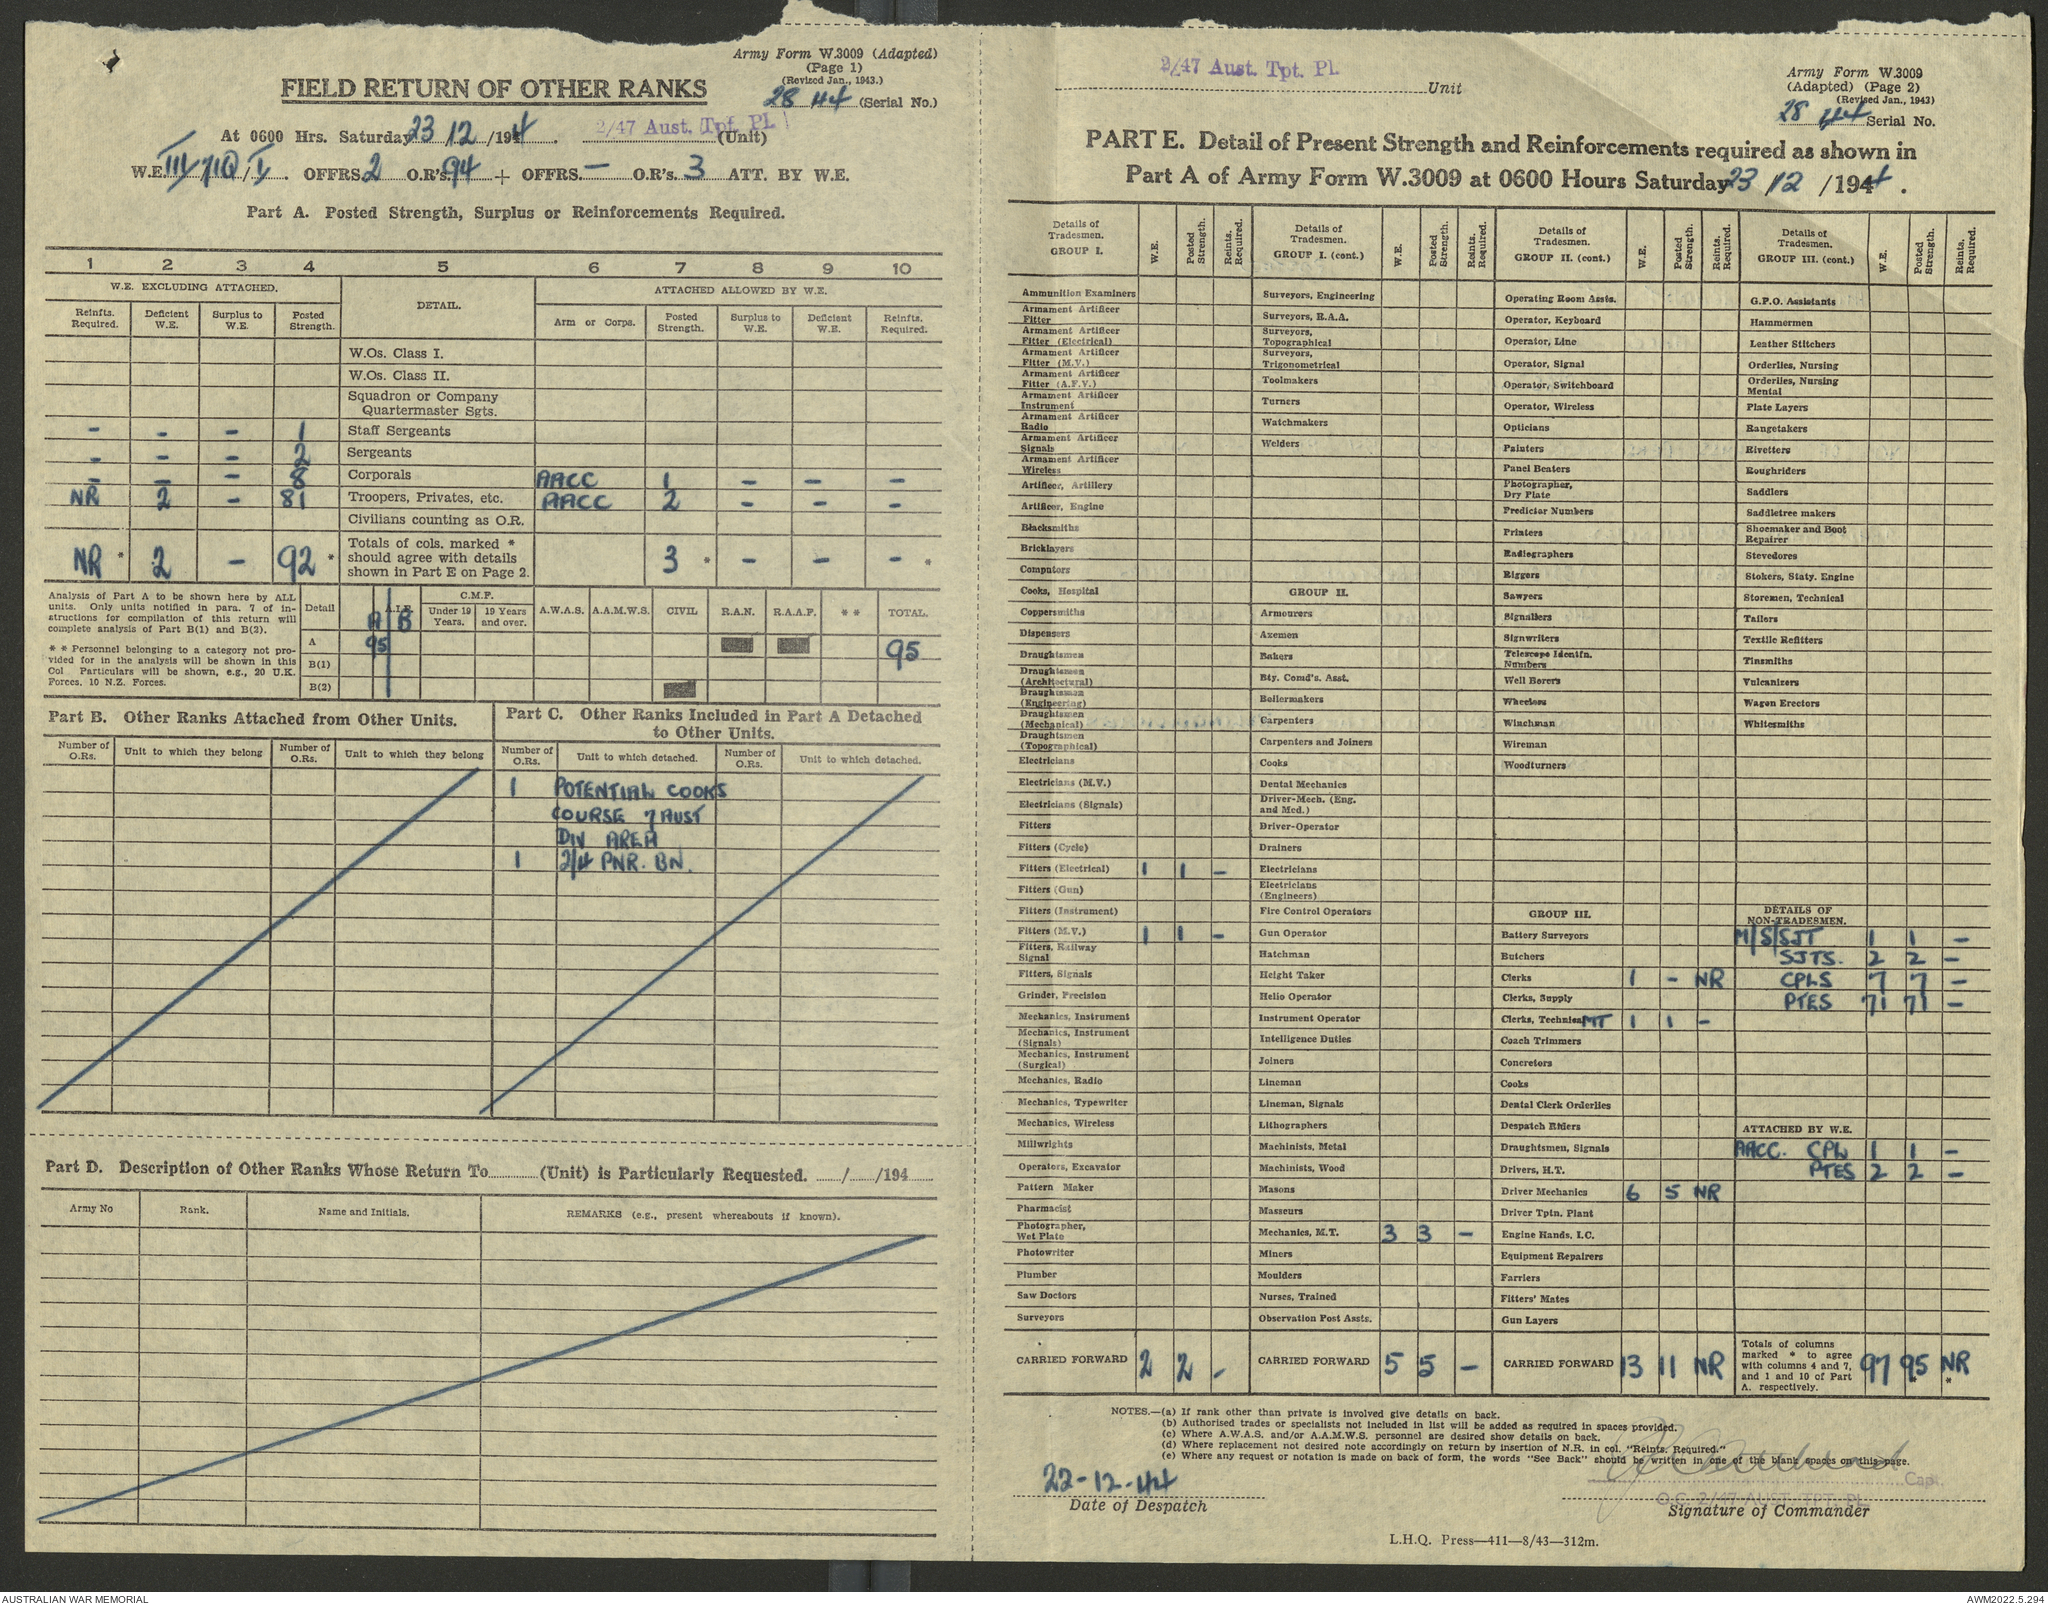 Army Form W.3009 (Adapted)
(Page 1)
(Revised Jan., 1943.)
28 44 (Serial No.)
FIELD RETURN OF OTHER RANKS
At 0600 Hrs. Saturday 23/12/1944. 2/47 Aust. Tpt. Pl. (Unit)
W.E. III/71Q/V. OFFRS. 2 O.R's. 94 + OFFRS. — O.R's. 3 ATT. BY W.E.
Part A. Posted Strength, Surplus or Reinforcements Required.
1 2 3 4 5 6 7 8 9 10
W.E. EXCLUDING ATTACHED. DETAIL. ATTACHED ALLOWED BY W.E.
Reinfts. Required. Deficient W.E. Surplus to W.E. Posted Strength. Arm or Corps. Posted Strength. Surplus to W.E. Deficient W.E. Reinfts. Required.
W.Os. Class I.
W.Os. Class II.
Squadron or Company Quartermaster Sgts.
- - - 1 Staff Sergeants
- - - 2 Sergeants
- - - 8 Corporals AACC 1 - - -
NR 2 - 81 Troopers, Privates, etc. AACC 2 - - -
Civilians counting as O.R.
NR * 2 - 92 * Totals of cols. marked * should agree with details shown in Part E on Page 2. 3 * - - - *
Analysis of Part A to be shown here by ALL units. Only units notified in para. 7 of instructions for compilation of this return will complete analysis of Part B(1) and B(2).
* * Personnel belonging to a category not provided for in the analysis will be shown in this Col Particulars will be shown, e.g., 20 U.K. Forces. 10 N.Z. Forces.
Detail A.I.F. A B C.M.F. Under 19 Years. 19 Years and over. A.W.A.S. A.A.M.W.S. CIVIL R.A.N. R.A.A.F. * * TOTAL.
A 95 95
B(1)
B(2)
Part B. Other Ranks Attached from Other Units.
Number of O.Rs. Unit to which they belong Number of O.Rs. Unit to which they belong
Part C. Other Ranks Included in Part A Detached to Other Units.
Number of O.Rs. Unit to which detached. Number of O.Rs. Unit to which detached.
1 POTENTIAL COOKS
COURSE 7 AUST
DIV AREA
1 2/4 PNR. BN.
Part D. Description of Other Ranks Whose Return To (Unit) is Particularly Requested. / /194
Army No Rank. Name and Initials. REMARKS (e.g., present whereabouts if known).
2/47 Aust. Tpt. Pl. Unit
Army Form W.3009
(Adapted) (Page 2)
(Revised Jan., 1943)
28 44 Serial No.
PART E. Detail of Present Strength and Reinforcements required as shown in
Part A of Army Form W.3009 at 0600 Hours Saturday 23/12/1944.
Details of Tradesmen. GROUP I. W.E. Posted Strength. Reints. Required.
Ammunition Examiners
Armament Artificer Fitter
Armament Artificer Fitter (Electrical)
Armament Artificer Fitter (M.V.)
Armament Artificer Fitter (A.F.V.)
Armament Artificer Instrument
Armament Artificer Radio
Armament Artificer Signals
Armament Artificer Wireless
Artificer, Artillery
Artificer, Engine
Blacksmiths
Bricklayers
Computors
Cooks, Hospital
Coppersmiths
Dispensers
Draughtsmen
Draughtsmen (Architectural)
Draughtsmen (Engineering)
Draughtsmen (Mechanical)
Draughtsmen (Topographical)
Electricians
Electricians (M.V.)
Electricians (Signals)
Fitters
Fitters (Cycle)
Fitters (Electrical) 1 1 -
Fitters (Gun)
Fitters (Instrument)
Fitters (M.V.) 1 1 -
Fitters, Railway Signal
Fitters, Signals
Grinder, Precision
Mechanics, Instrument
Mechanics, Instrument (Signals)
Mechanics, Instrument (Surgical)
Mechanics, Radio
Mechanics, Typewriter
Mechanics, Wireless
Millwrights
Operators, Excavator
Pattern Maker
Pharmacist
Photographer, Wet Plate
Photowriter
Plumber
Saw Doctors
Surveyors
CARRIED FORWARD 2 2 -
Details of Tradesmen. GROUP I. (cont.) W.E. Posted Strength. Reints. Required.
Surveyors, Engineering
Surveyors, R.A.A.
Surveyors, Topographical
Surveyors, Trigonometrical
Toolmakers
Turners
Watchmakers
Welders
GROUP II.
Armourers
Axemen
Bakers
Bty. Comd's. Asst.
Boilermakers
Carpenters
Carpenters and Joiners
Cooks
Dental Mechanics
Driver-Mech. (Eng. and Med.)
Driver-Operator
Drainers
Electricians
Electricians (Engineers)
Fire Control Operators
Gun Operator
Hatchman
Height Taker
Helio Operator
Instrument Operator
Intelligence Duties
Joiners
Lineman
Lineman, Signals
Lithographers
Machinists, Metal
Machinists, Wood
Masons
Masseurs
Mechanics, M.T. 3 3 -
Miners
Moulders
Nurses, Trained
Observation Post Assts.
CARRIED FORWARD 5 5 -
Details of Tradesmen. GROUP II. (cont.) W.E. Posted Strength. Reints. Required.
Operating Room Assts.
Operator, Keyboard
Operator, Line
Operator, Signal
Operator, Switchboard
Operator, Wireless
Opticians
Painters
Panel Beaters
Photographer, Dry Plate
Predictor Numbers
Printers
Radiographers
Riggers
Sawyers
Signallers
Signwriters
Telescope Identfn. Numbers
Well Borers
Wheelers
Winchman
Wireman
Woodturners
GROUP III.
Battery Surveyors
Butchers
Clerks 1 - NR
Clerks, Supply
Clerks, Technical MT 1 1 -
Coach Trimmers
Concretors
Cooks
Dental Clerk Orderlies
Despatch Riders
Draughtsmen, Signals
Drivers, H.T.
Driver Mechanics 6 5 NR
Driver Tptn. Plant
Engine Hands, I.C.
Equipment Repairers
Farriers
Fitters' Mates
Gun Layers
CARRIED FORWARD 13 11 NR
Details of Tradesmen. GROUP III. (cont.) W.E. Posted Strength. Reints. Required.
G.P.O. Assistants
Hammermen
Leather Stitchers
Orderlies, Nursing
Orderlies, Nursing Mental
Plate Layers
Rangetakers
Rivetters
Roughriders
Saddlers
Saddletree makers
Shoemaker and Boot Repairer
Stevedores
Stokers, Staty. Engine
Storemen, Technical
Tailers
Textile Refitters
Tinsmiths
Vulcanizers
Wagon Erectors
Whitesmiths
DETAILS OF NON-TRADESMEN.
M/S/SJT 1 1 -
SJTS. 2 2 -
CPLS 7 7 -
PTES 71 71 -
ATTACHED BY W.E.
AACC. CPL 1 1 -
PTES 2 2 -
Totals of columns marked * to agree with columns 4 and 7, and 1 and 10 of Part A. respectively. 97 95 * NR *
NOTES.—(a) If rank other than private is involved give details on back.
(b) Authorised trades or specialists not included in list will be added as required in spaces provided.
(c) Where A.W.A.S. and/or A.A.M.W.S. personnel are desired show details on back.
(d) Where replacement not desired note accordingly on return by insertion of N.R. in col. "Reints. Required."
(e) Where any request or notation is made on back of form, the words "See Back" should be written in one of the blank spaces on this page.
22-12-44
Date of Despatch
Capt.
O.C. 2/47 AUST. TPT. PL.
Signature of Commander
L.H.Q. Press—411—8/43—312m.
AUSTRALIAN WAR MEMORIAL
AWM2022.5.294